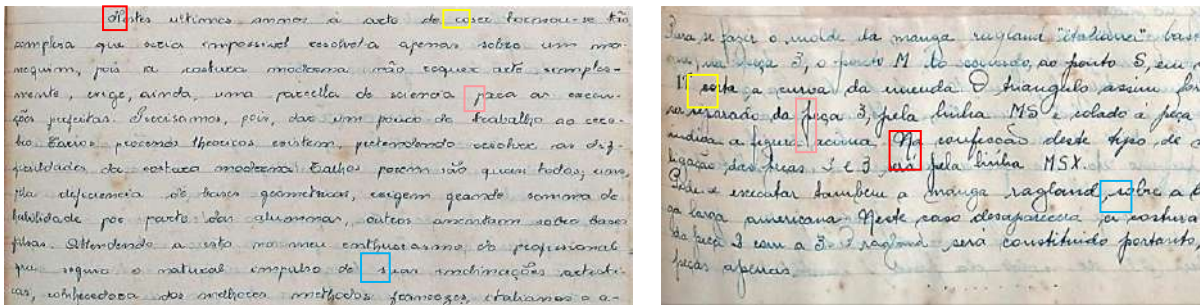 Nestes ultimos annos a arte de coser tornou-se tão
complexa que seria impossivel resolvel-a apenas sobre um ma-
nequim, pois a costura moderna não requer arte, simples-
mente, exige, ainda, uma parcella de sciencia para as execu-
ções perfeitas. Precisamos, pois, dar um pouco de trabalho ao cere-
bro. Varios processos theoricos existem, pretendendo resolver as dif-
ficuldades da costura moderna. Falhos porem são quasi todos; uns,
pla deficiencia de bases geometricas, exigem grande somma de
habilidade por parte das alumnas, outros assentam sobre bases
falsas. Attendendo a isto, no meu enthusiasmo de profissional
que seguiu o natural impulso de suas inclinações artisti-
cas, conhecedora dos melhores methodos francezes, italianos e a-
Para se fazer o molde da manga ragland "italiana"
na peça 3, o ponto M ao ponto S, em
corta a curva da emenda O triangulo assim
separado da peça 3, pela linha MS e colado á peça
indica a figura acima. Na confecção deste typo de
ligação das peças 1 e 3, pela linha MSX.
Pode-se executar tambem a manga ragland, sobre a
ga larga americana Neste caso desapparecerá a costura
da peça 2 com a 3. O ragland será constituido portanto,
peças apenas.